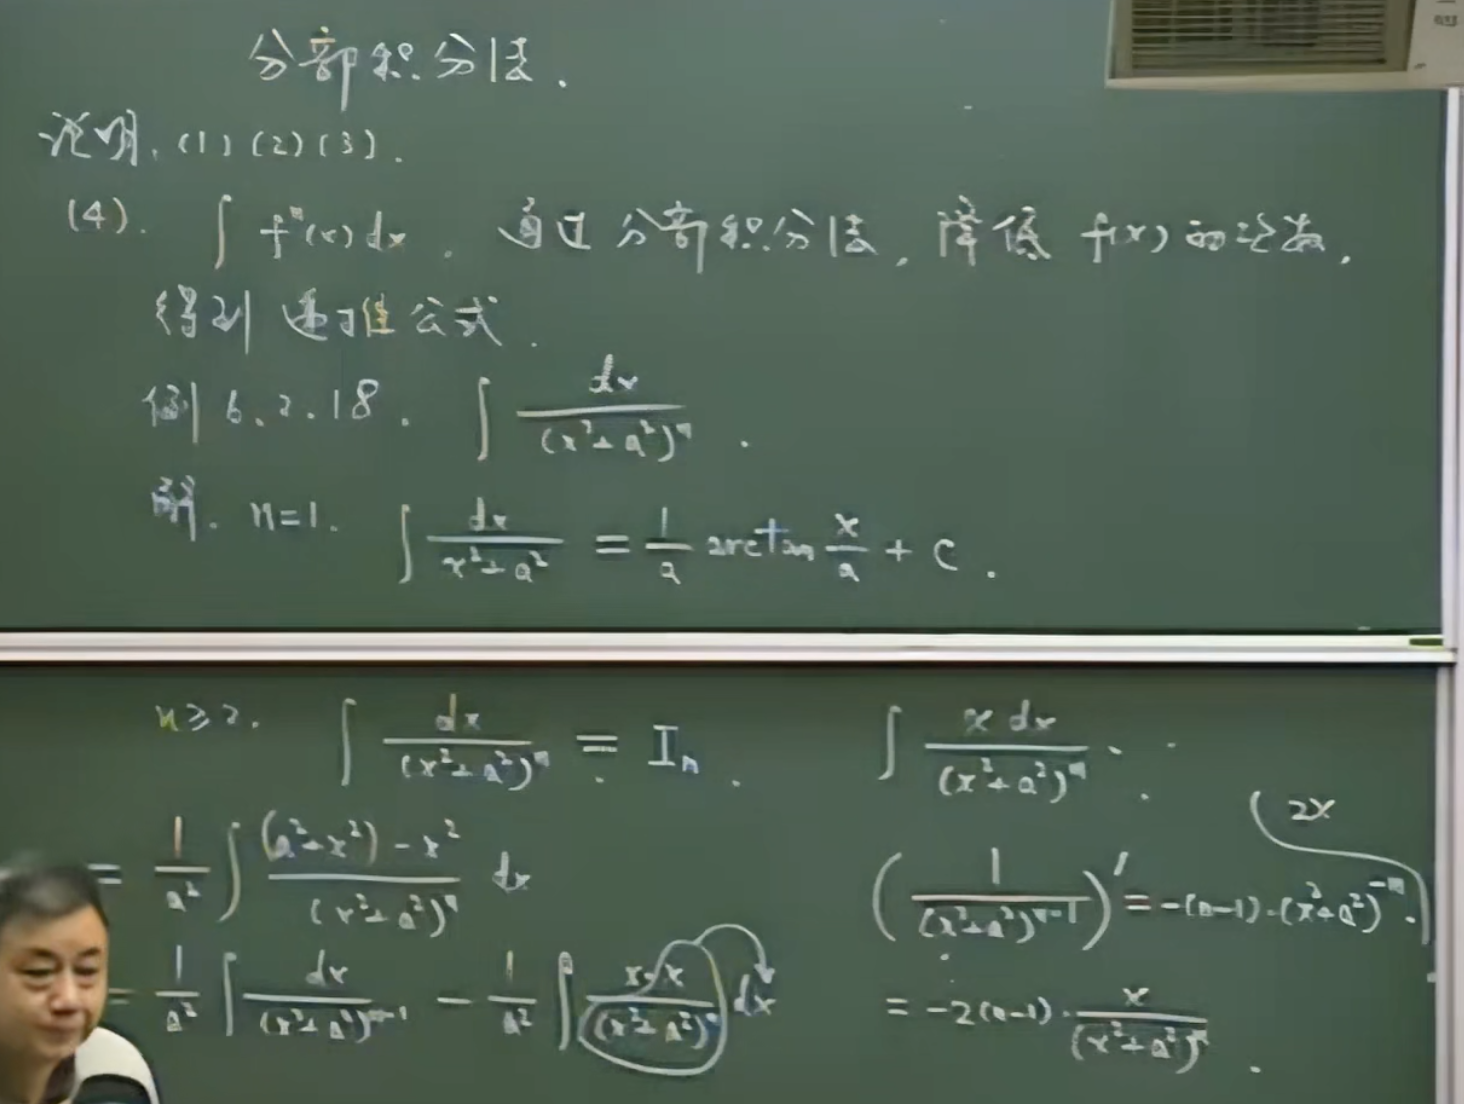 分部积分法.
说明. (1) (2) (3).
(4). ∫ fⁿ(x) dx. 通过分部积分法, 降低 f(x) 的次数,
得到递推公式.
例 6.2.18. ∫ dx/(x²+a²)ⁿ.
解. n=1. ∫ dx/(x²+a²) = 1/a arctan x/a + C.
n≥2. ∫ dx/(x²+a²)ⁿ = Iₙ.
= 1/a² ∫ ((a²+x²)-x²)/(x²+a²)ⁿ dx
= 1/a² ∫ dx/(x²+a²)ⁿ⁻¹ - 1/a² ∫ x·x/(x²+a²)ⁿ dx
∫ x dx/(x²+a²)ⁿ.
2x
(1/(x²+a²)ⁿ⁻¹)′ = -(n-1)·(x²+a²)⁻ⁿ·
= -2(n-1)·x/(x²+a²)ⁿ.